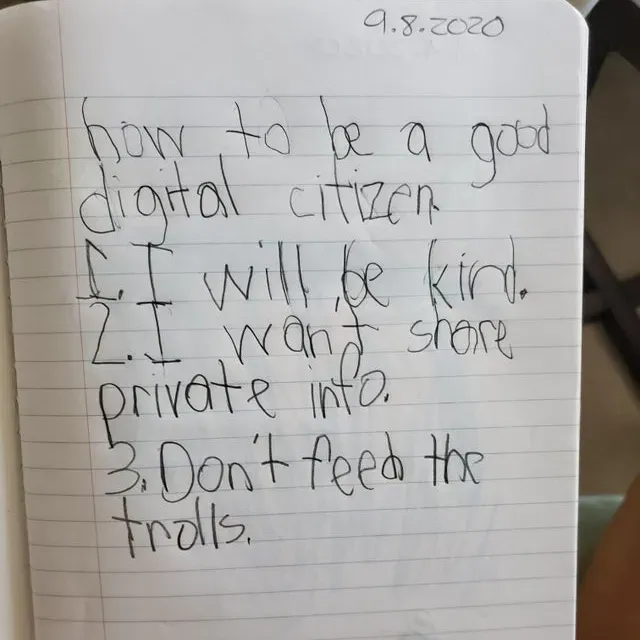 9.8.2020
how to be a good
digital citizen
1. I will be kind.
2. I want share
private info.
3. Don't feed the
trolls.